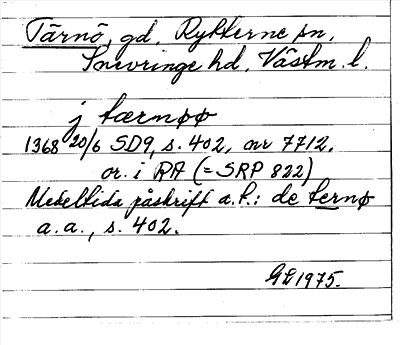 Tärnö, gd, Rytterne sn,
Snevringe hd, Västm. l.
j tærnøø
1368 20/6 SD9, s. 402, nr 7712,
or. i RA (= SRP 822)
Medeltida påskrift a.t.: de ternø
a.a., s. 402.
GL 1975.